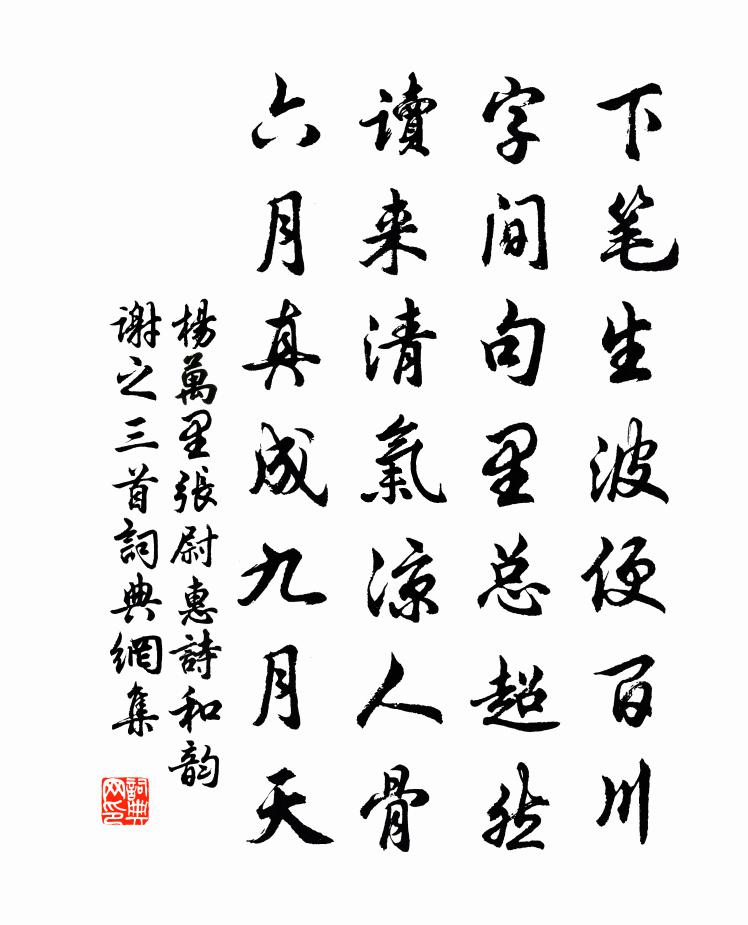 下笔生波便百川
字间句里总超然
讀来清氣凉人骨
六月真成九月天
楊萬里張尉惠詩和韵
謝之三首詞典網集
詞典网印